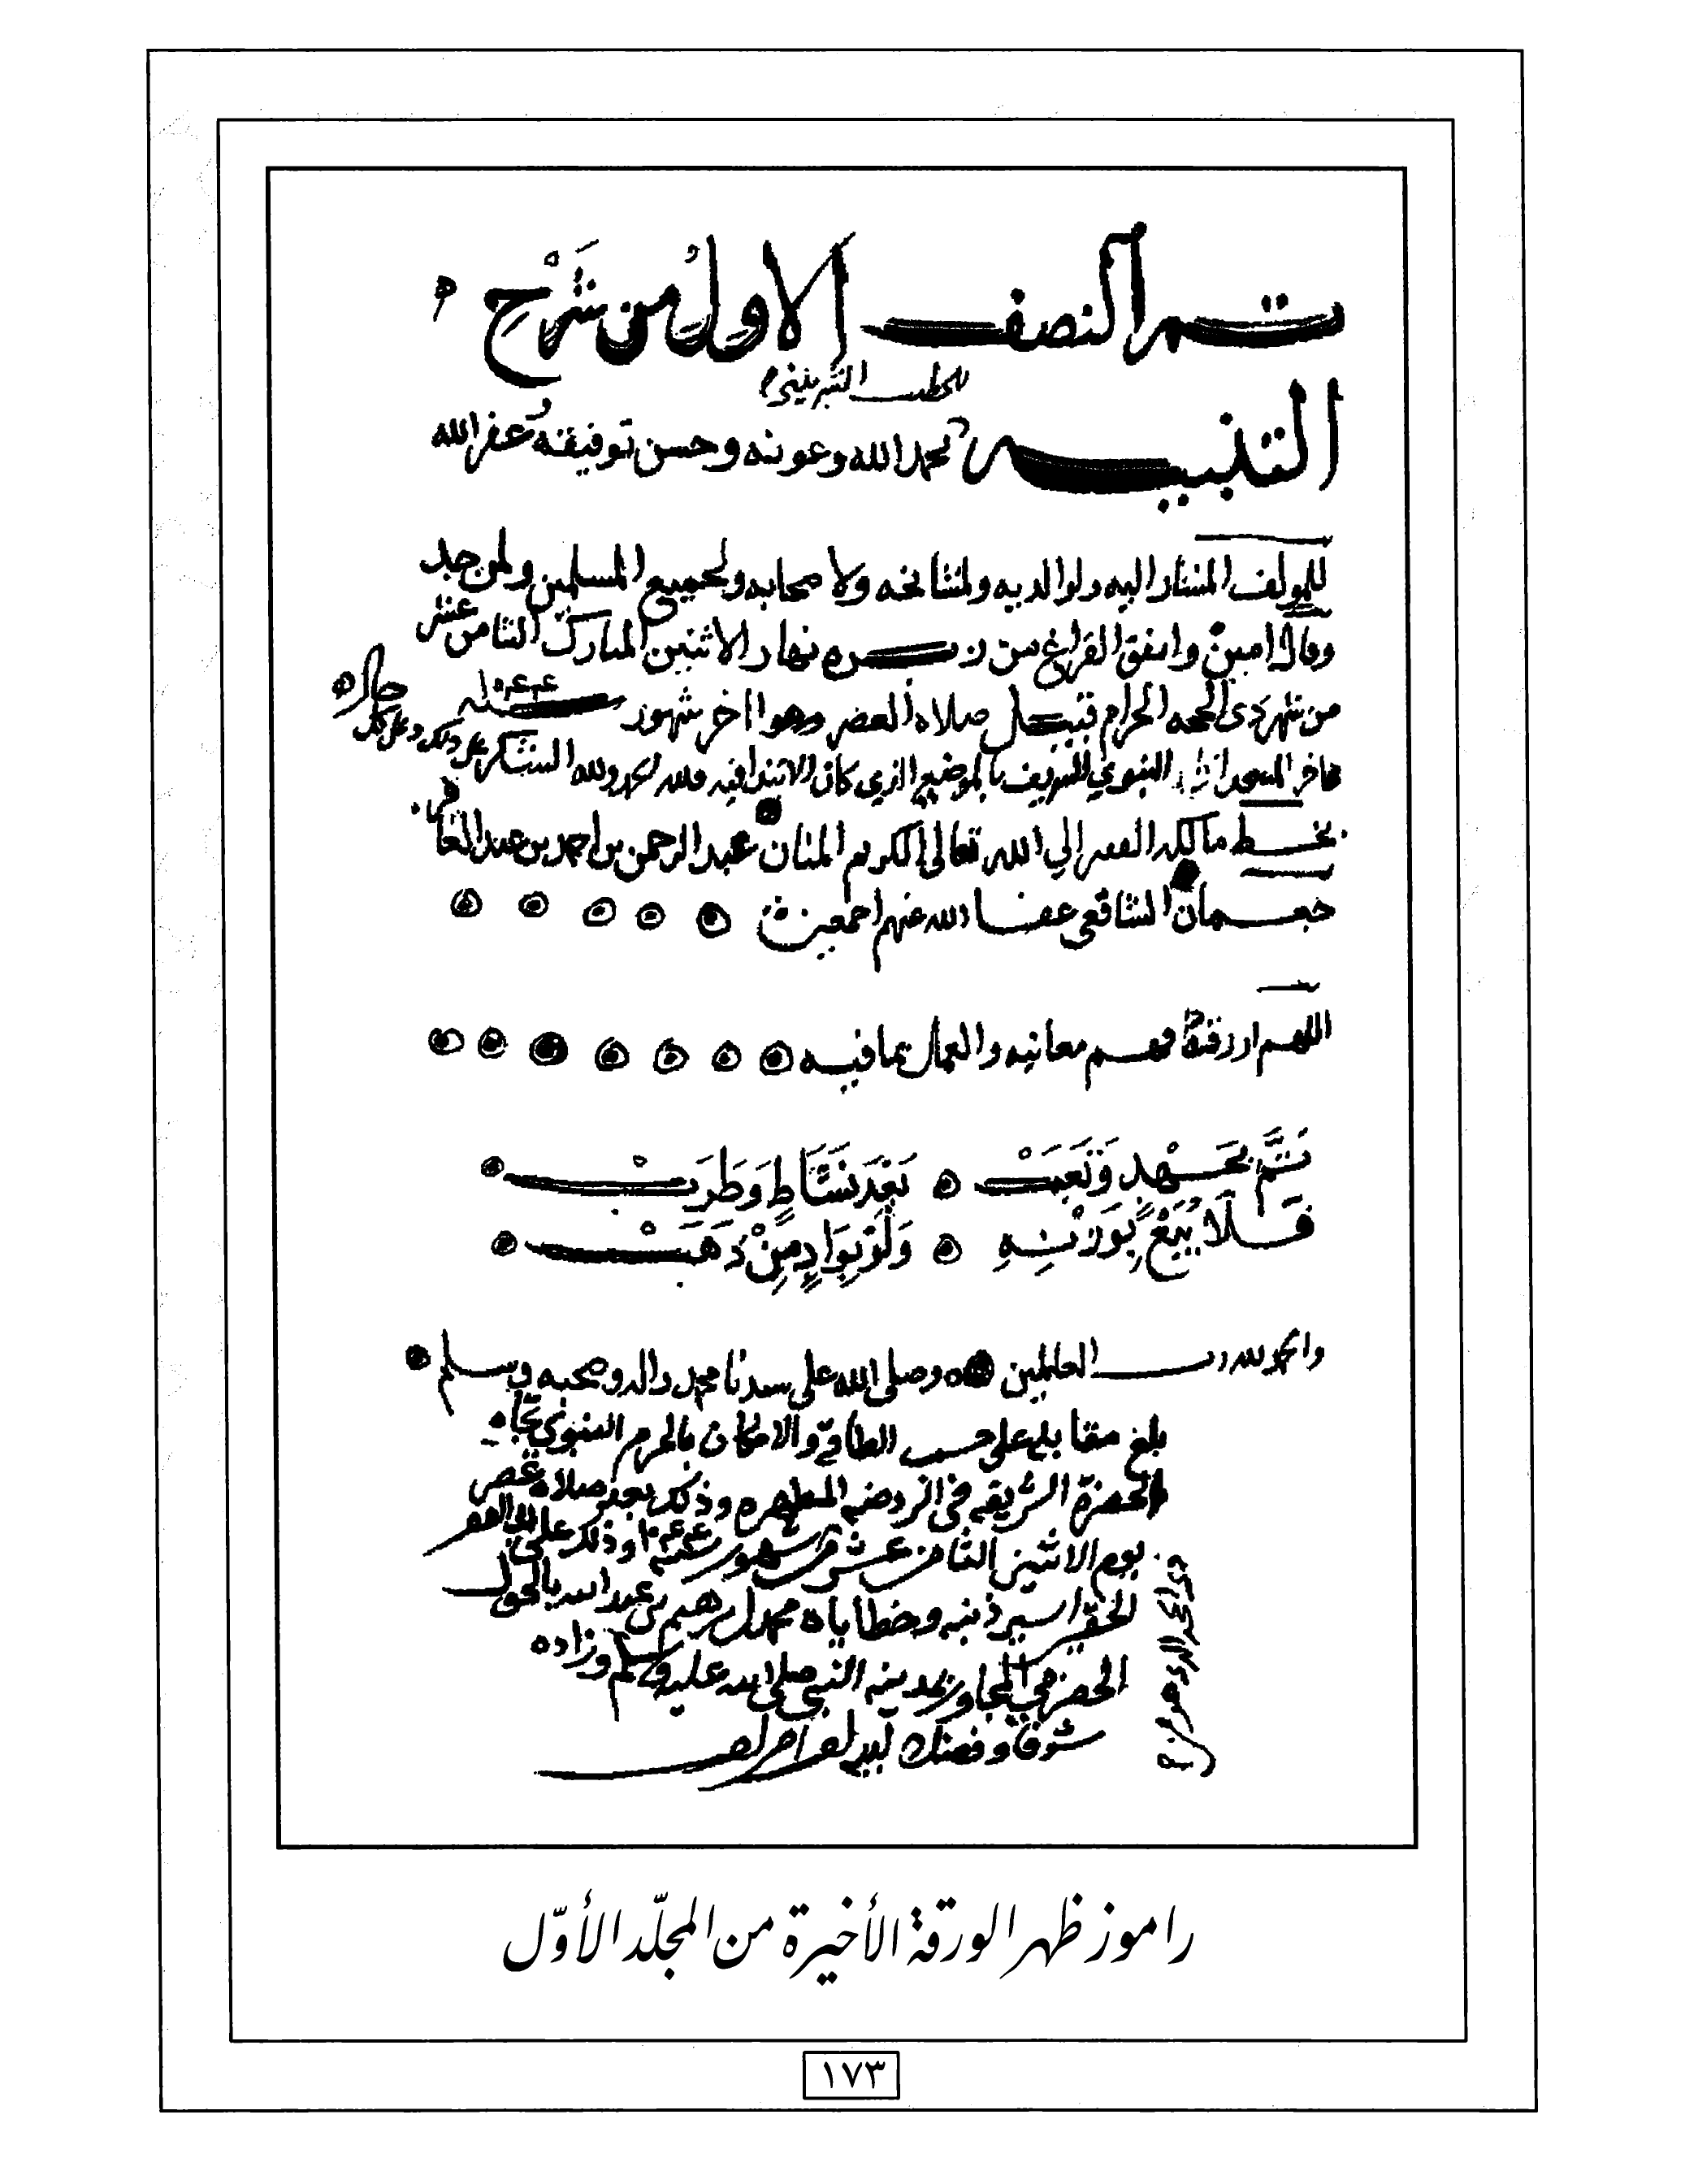 تم النصف الاول من شَرْحِ
للخطيب الشربيني
التنبيه بحمد الله وعونه وحسن توفيقه غفر الله
للمولف المشار اليه ولوالديه ولمشايخه ولاصحابه ولجميع المسلمين ولمن
وقال امين واتفق الفراغ من نهار الاثنين المبارك الثامن عشر
من شهر ذي الحجه الحرام قبيل صلاه العصر وهو اخر شهور سنة ١٠٤٤
المسجد النبوي الشريف بالموضع الذي كان الابتدا فيه ولله الحمد ولله الشكر على ذلك وعلى كل حال
بخط مالكه الفقير الي الله تعالى الكريم المنان عبد الرحمن بن احمد بن عبد الغفار
جعمان الشافعي عفا الله عنهم اجمعين
اللهم ارزقنا فهم معانيه والعمل بما فيه
تَمَّ بِجَهْدٍ وَتَعَبْ بَعْدَ نَشَاطٍ وَطَرَبْ
فَلَا يُبَعْ بِوَزْنِهِ وَلَوْ بِوَادٍ مِنْ ذَهَبْ
والحمد لله رب العالمين وصلى الله على سيدنا محمد واله وصحبه وسلم
بلغ مقابله على حسب الطاقة والامكان بالحرم النبوي تجاه
الحضرة الشريفه في الروضه المطهره وذلك بعد صلاة عصر
يوم الاثنين الثامن عشر شهور سنة وذلك على يد الفقير
الحقير اسير ذنبه وخطاياه محمد ابرهيم بن عبد الله
الحضرمي المجاور بمدينه النبي صلى الله عليه وسلم وزاده
شرفا وفضلا لديه
راموز ظهر الورقة الأخيرة من المجلّد الأوّل
١٧٣